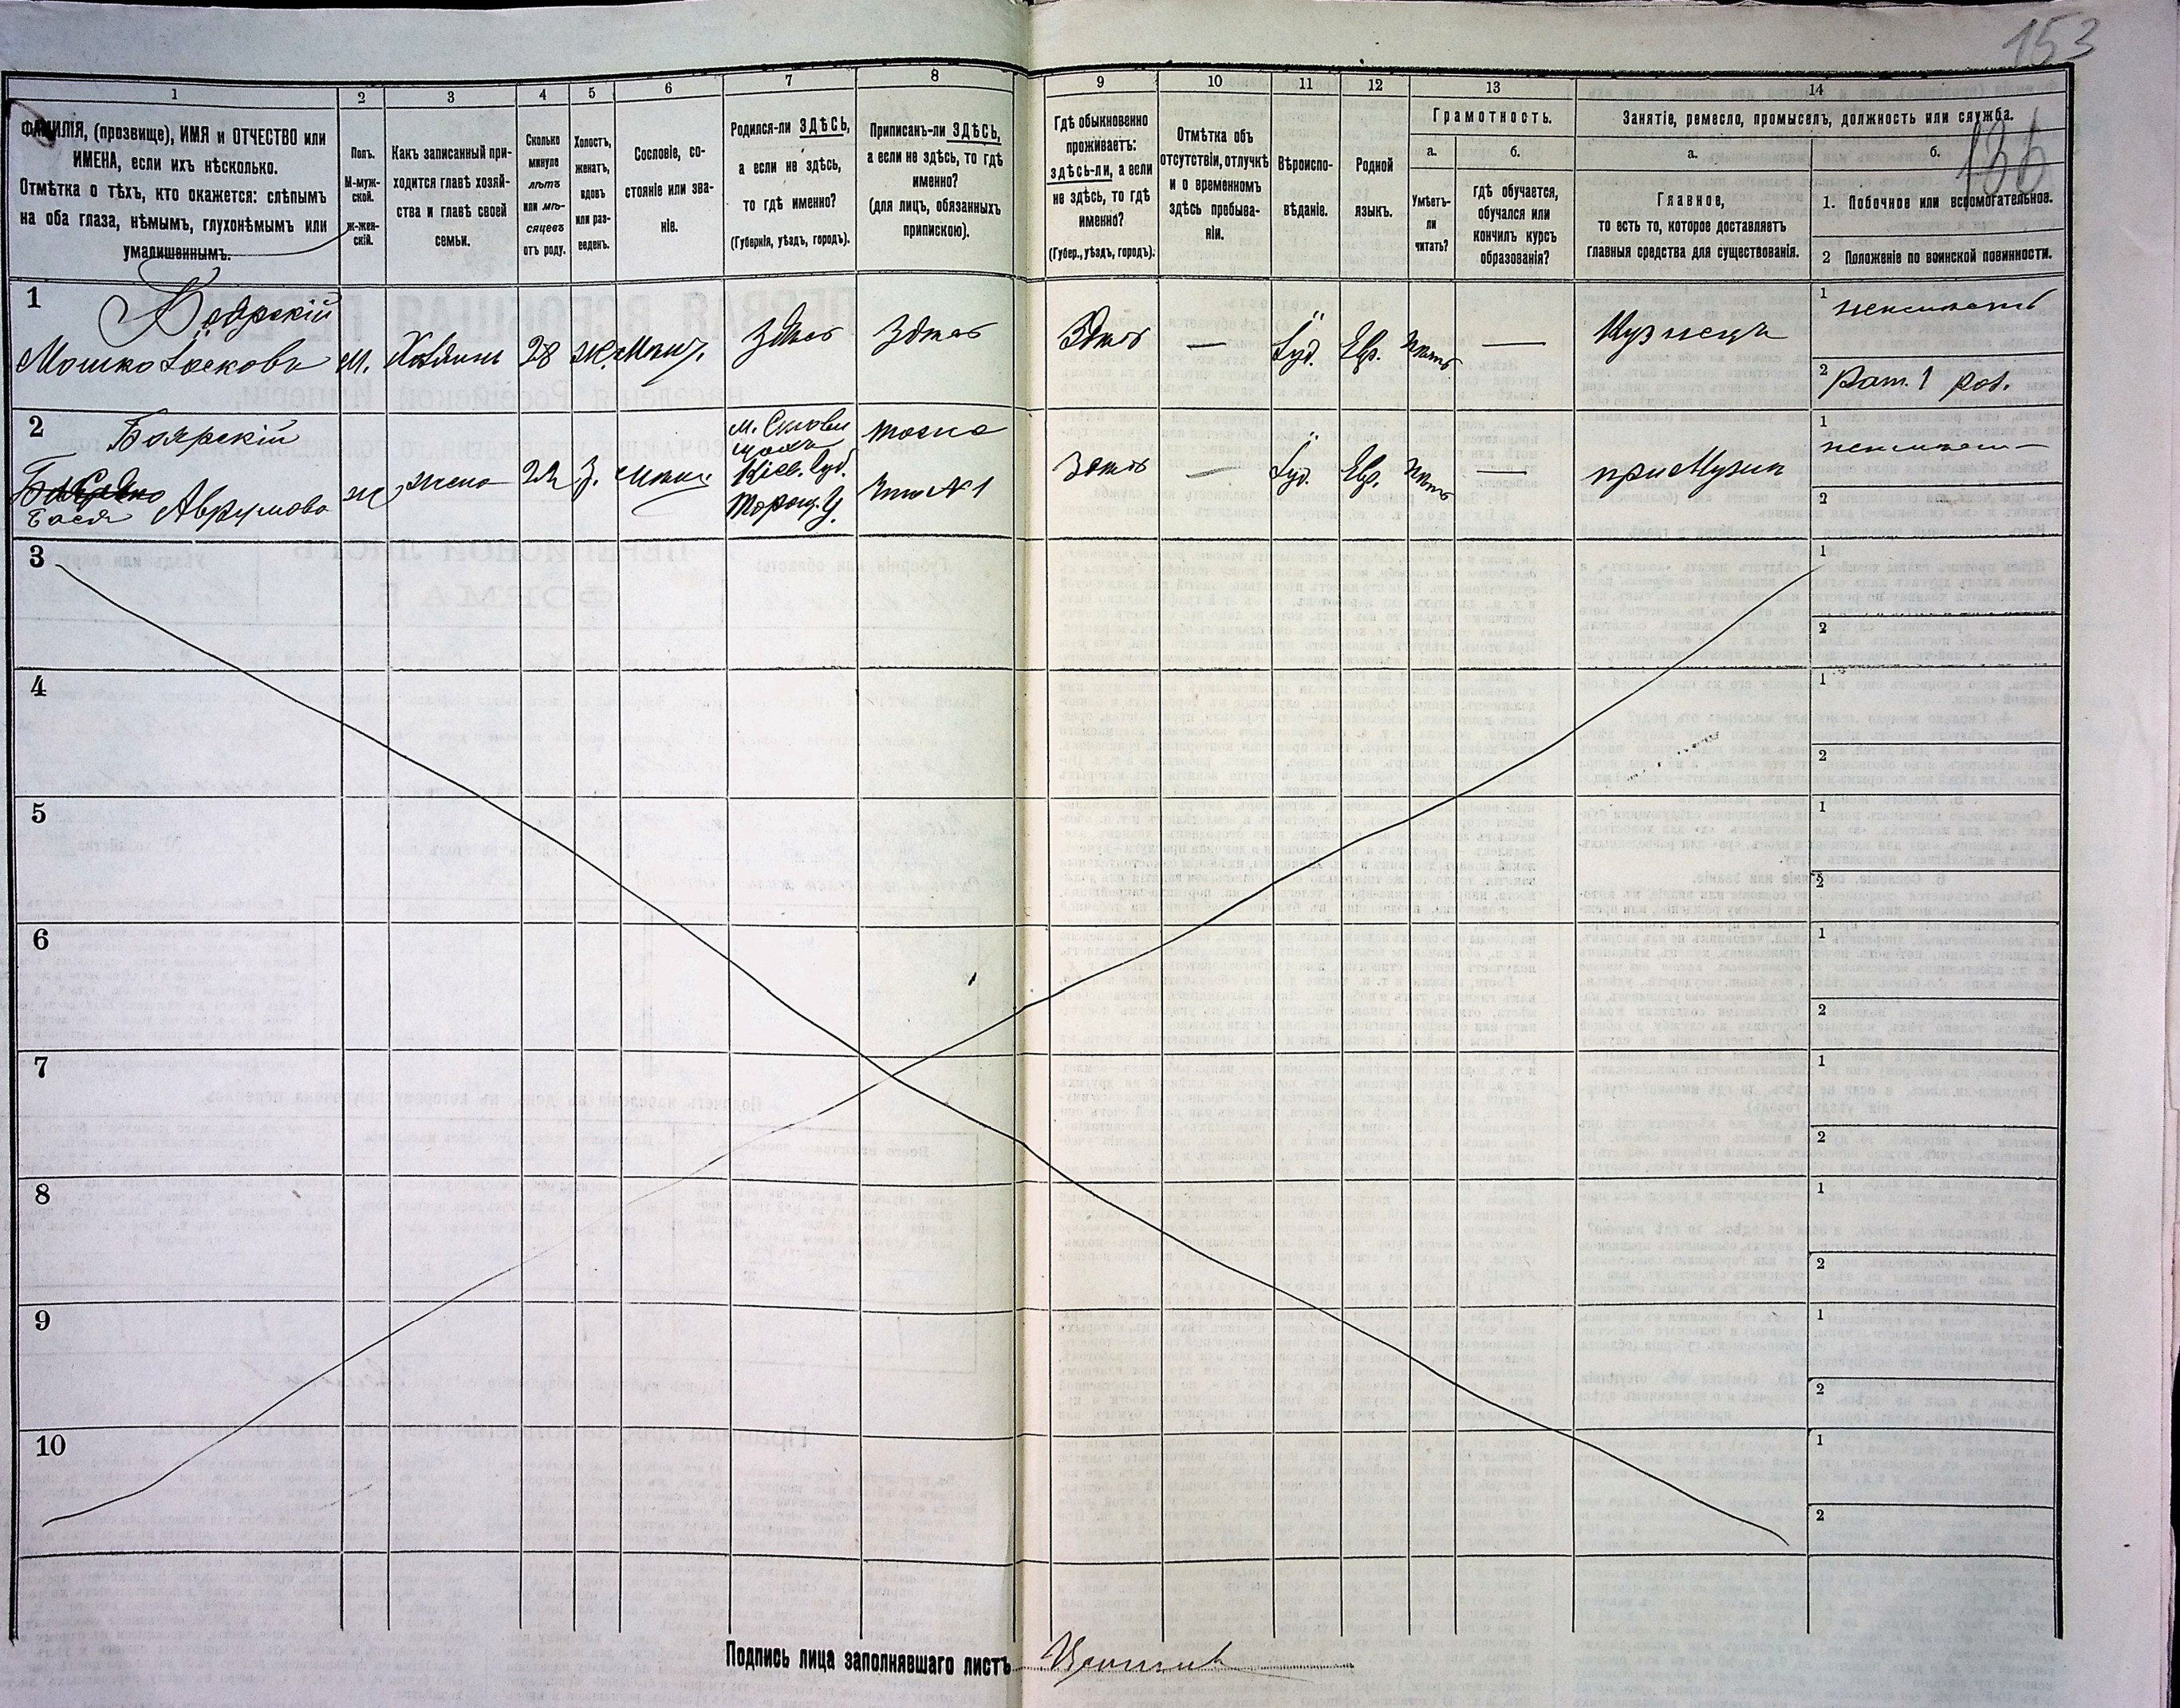 153
136
1
2
3
4
5
6
7
8
9
10
11
12
13
14
ФАМИЛІЯ, (прозвище), ИМЯ и ОТЧЕСТВО или
ИМЕНА, если ихъ нѣсколько.
Отмѣтка о тѣхъ, кто окажется: слѣпымъ
на оба глаза, нѣмымъ, глухонѣмымъ или
умалишеннымъ.
Полъ.
М-муж-
ской.
ж-жен-
скій.
Какъ записанный при-
ходится главѣ хозяй-
ства и главѣ своей
семьи.
Сколько
минуло
лѣтъ
или мѣ-
сяцевъ
отъ роду.
Холостъ,
женатъ,
вдовъ
или раз-
веденъ.
Сословіе, со-
стояніе или зва-
ніе.
Родился-ли ЗДѢСЬ,
а если не здѣсь,
то гдѣ именно?
(Губернія, уѣздъ, городъ).
Приписанъ-ли ЗДѢСЬ,
а если не здѣсь, то гдѣ
именно?
(для лицъ, обязанныхъ
припискою).
Гдѣ обыкновенно
проживаетъ:
здѣсь-ли, а если
не здѣсь, то гдѣ
именно?
(Губер., уѣздъ, городъ).
Отмѣтка объ
отсутствіи, отлучкѣ
и о временномъ
здѣсь пребыва-
ніи.
Вѣроиспо-
вѣданіе.
Родной
языкъ.
Грамотность.
а.
Умѣетъ-
ли
читать?
б.
гдѣ обучается,
обучался или
кончилъ курсъ
образованія?
Занятіе, ремесло, промыселъ, должность или служба.
а.
Главное,
то есть то, которое доставляетъ
главныя средства для существованія.
б.
1. Побочное или вспомогательное.
2 Положеніе по воинской повинности.
1
Боярскій
Мошко Іосковъ
М.
Хозяинъ
28
ж.
Мѣщ.
Здѣсь
Здѣсь
Здѣсь
—
Іуд.
Евр.
Нѣтъ
—
Кузнецъ
1
2 Рат. 1 раз.
2
Боярскій
Бася Аврумова
ж
жена
22
З.
Мѣщ.
Кіев. губ.
Таращ. У.
Здѣсь
—
Іуд.
Евр.
Нѣтъ
—
при Мужѣ
1
2
3
1
2
4
1
2
5
1
2
6
1
2
7
1
2
8
1
2
9
1
2
10
1
2
Подпись лица заполнявшаго листъ